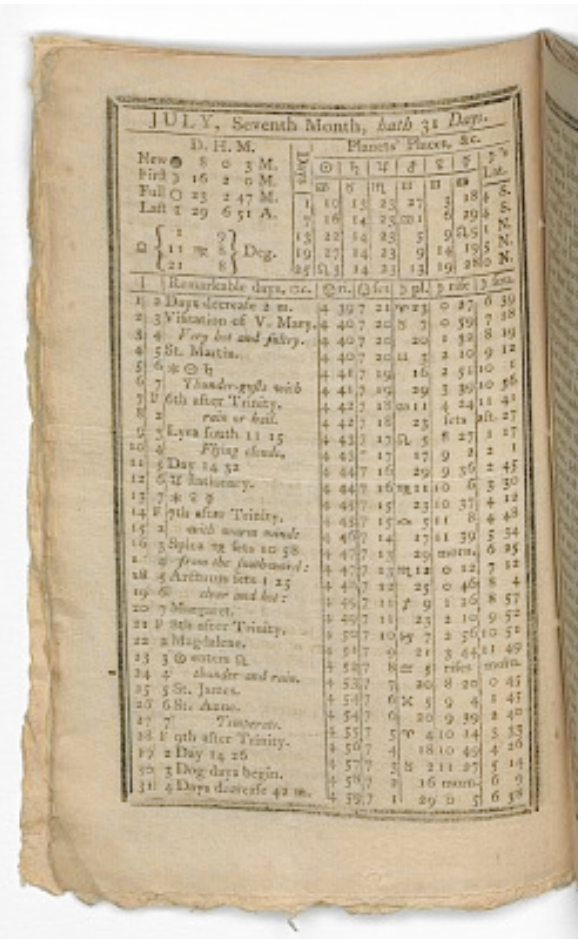 JULY, Seventh Month, hath 31 Days.
D. H. M.
Planets' Places, &c.
New ● 8 0 3 M.
First ☽ 16 2 0 M.
Full ○ 23 2 47 M.
Last ☾ 29 6 51 A.
Days ☉ ♄ ♃ ♂ ♀ ☿ ☽'s Lat.
1 10 13 23 27 3 18 4 S.
7 16 14 23 ♋ 1 6 29 4 S.
13 22 14 23 5 9 ♌ 5 1 N.
19 27 14 23 9 14 19 5 N.
25 ♌ 3 14 23 13 19 28 0 N.
☊ { 1 9 } Deg.
11 ♏ 8
21 8
Remarkable days, &c. ☉ ri. ☉ set ☽ pl. ☽ rise ☽ sou.
1 2 Days decrease 2 m. 4 39 7 21 ♈ 23 0 27 6 39
2 3 Visitation of V. Mary. 4 40 7 20 ♉ 7 0 59 7 18
3 4 Very hot and sultry. 4 40 7 20 20 1 32 8 19
4 5 St. Martin. 4 40 7 20 ♊ 3 2 10 9 12
5 6 ⚹ ☉ ♄ 4 41 7 19 16 2 51 10 1
6 7 Thunder-gusts with 4 41 7 19 29 3 39 10 56
7 F 6th after Trinity. 4 42 7 18 ♋ 11 4 24 11 41
8 2 rain or hail. 4 42 7 18 23 sets aft. 27
9 3 Lyra south 11 15 4 43 7 17 ♌ 5 8 27 1 17
10 4 Flying clouds, 17 17 9 2 2 1
11 5 Day 14 32 4 44 7 16 29 9 36 2 45
12 6 ♃ stationary. 4 44 7 16 ♍ 11 10 6 3 30
13 7 ⚹ ♀ 4 45 7 15 23 10 37 4 12
14 F 7th after Trinity. 4 45 7 15 ♎ 5 11 8 4 48
15 2 with warm winds 4 46 7 14 17 11 39 5 34
16 3 Spica ♍ sets 10 58 4 47 7 13 29 morn. 6 25
17 4 from the southward: 4 47 7 13 ♏ 12 0 12 7 12
18 5 Arcturus sets 1 25 4 48 7 12 25 0 46 8 4
19 6 clear and hot: 4 49 7 11 ♐ 9 1 26 8 57
20 7 Margaret. 4 49 7 11 23 2 10 9 52
21 F 8th after Trinity. 4 50 7 10 ♑ 7 2 56 10 51
22 2 Magdalene. 4 51 7 9 21 3 44 11 49
23 3 ☉ enters ♌ 4 52 7 8 ♒ 5 rises morn.
24 4 thunder and rain. 4 53 7 7 20 8 20 0 45
25 5 St. James. 4 54 7 6 ♓ 5 9 4 1 45
26 6 St. Anne. 4 54 7 6 20 9 39 2 40
27 7 Temperate. 4 55 7 5 ♈ 4 10 14 3 33
28 F 9th after Trinity. 4 56 7 4 18 10 49 4 26
29 2 Day 14 26 4 57 7 3 ♉ 2 11 27 5 14
30 3 Dog days begin. 4 58 7 2 16 morn. 6 9
31 4 Days decrease 42 m. 4 59 7 1 29 0 5 6 58